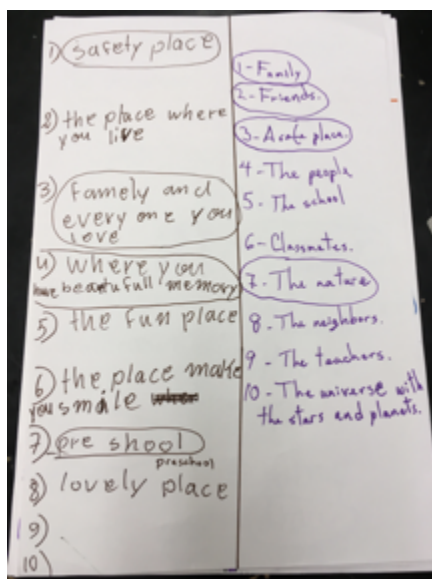 1) safety place
2) the place where
you live
3) Famely and
every one you
love
4) where you
have beautufull memory
5) the fun place
6) the place make
you smile
7) pre shool
preschool
8) lovely place
9)
10)
1 - Family
2 - Friends.
3 - A safe place.
4 - The people
5 - The school
6 - Classmates.
7 - The nature
8 - The neighbors.
9 - The teachers.
10 - The universe with
the stars and planets.